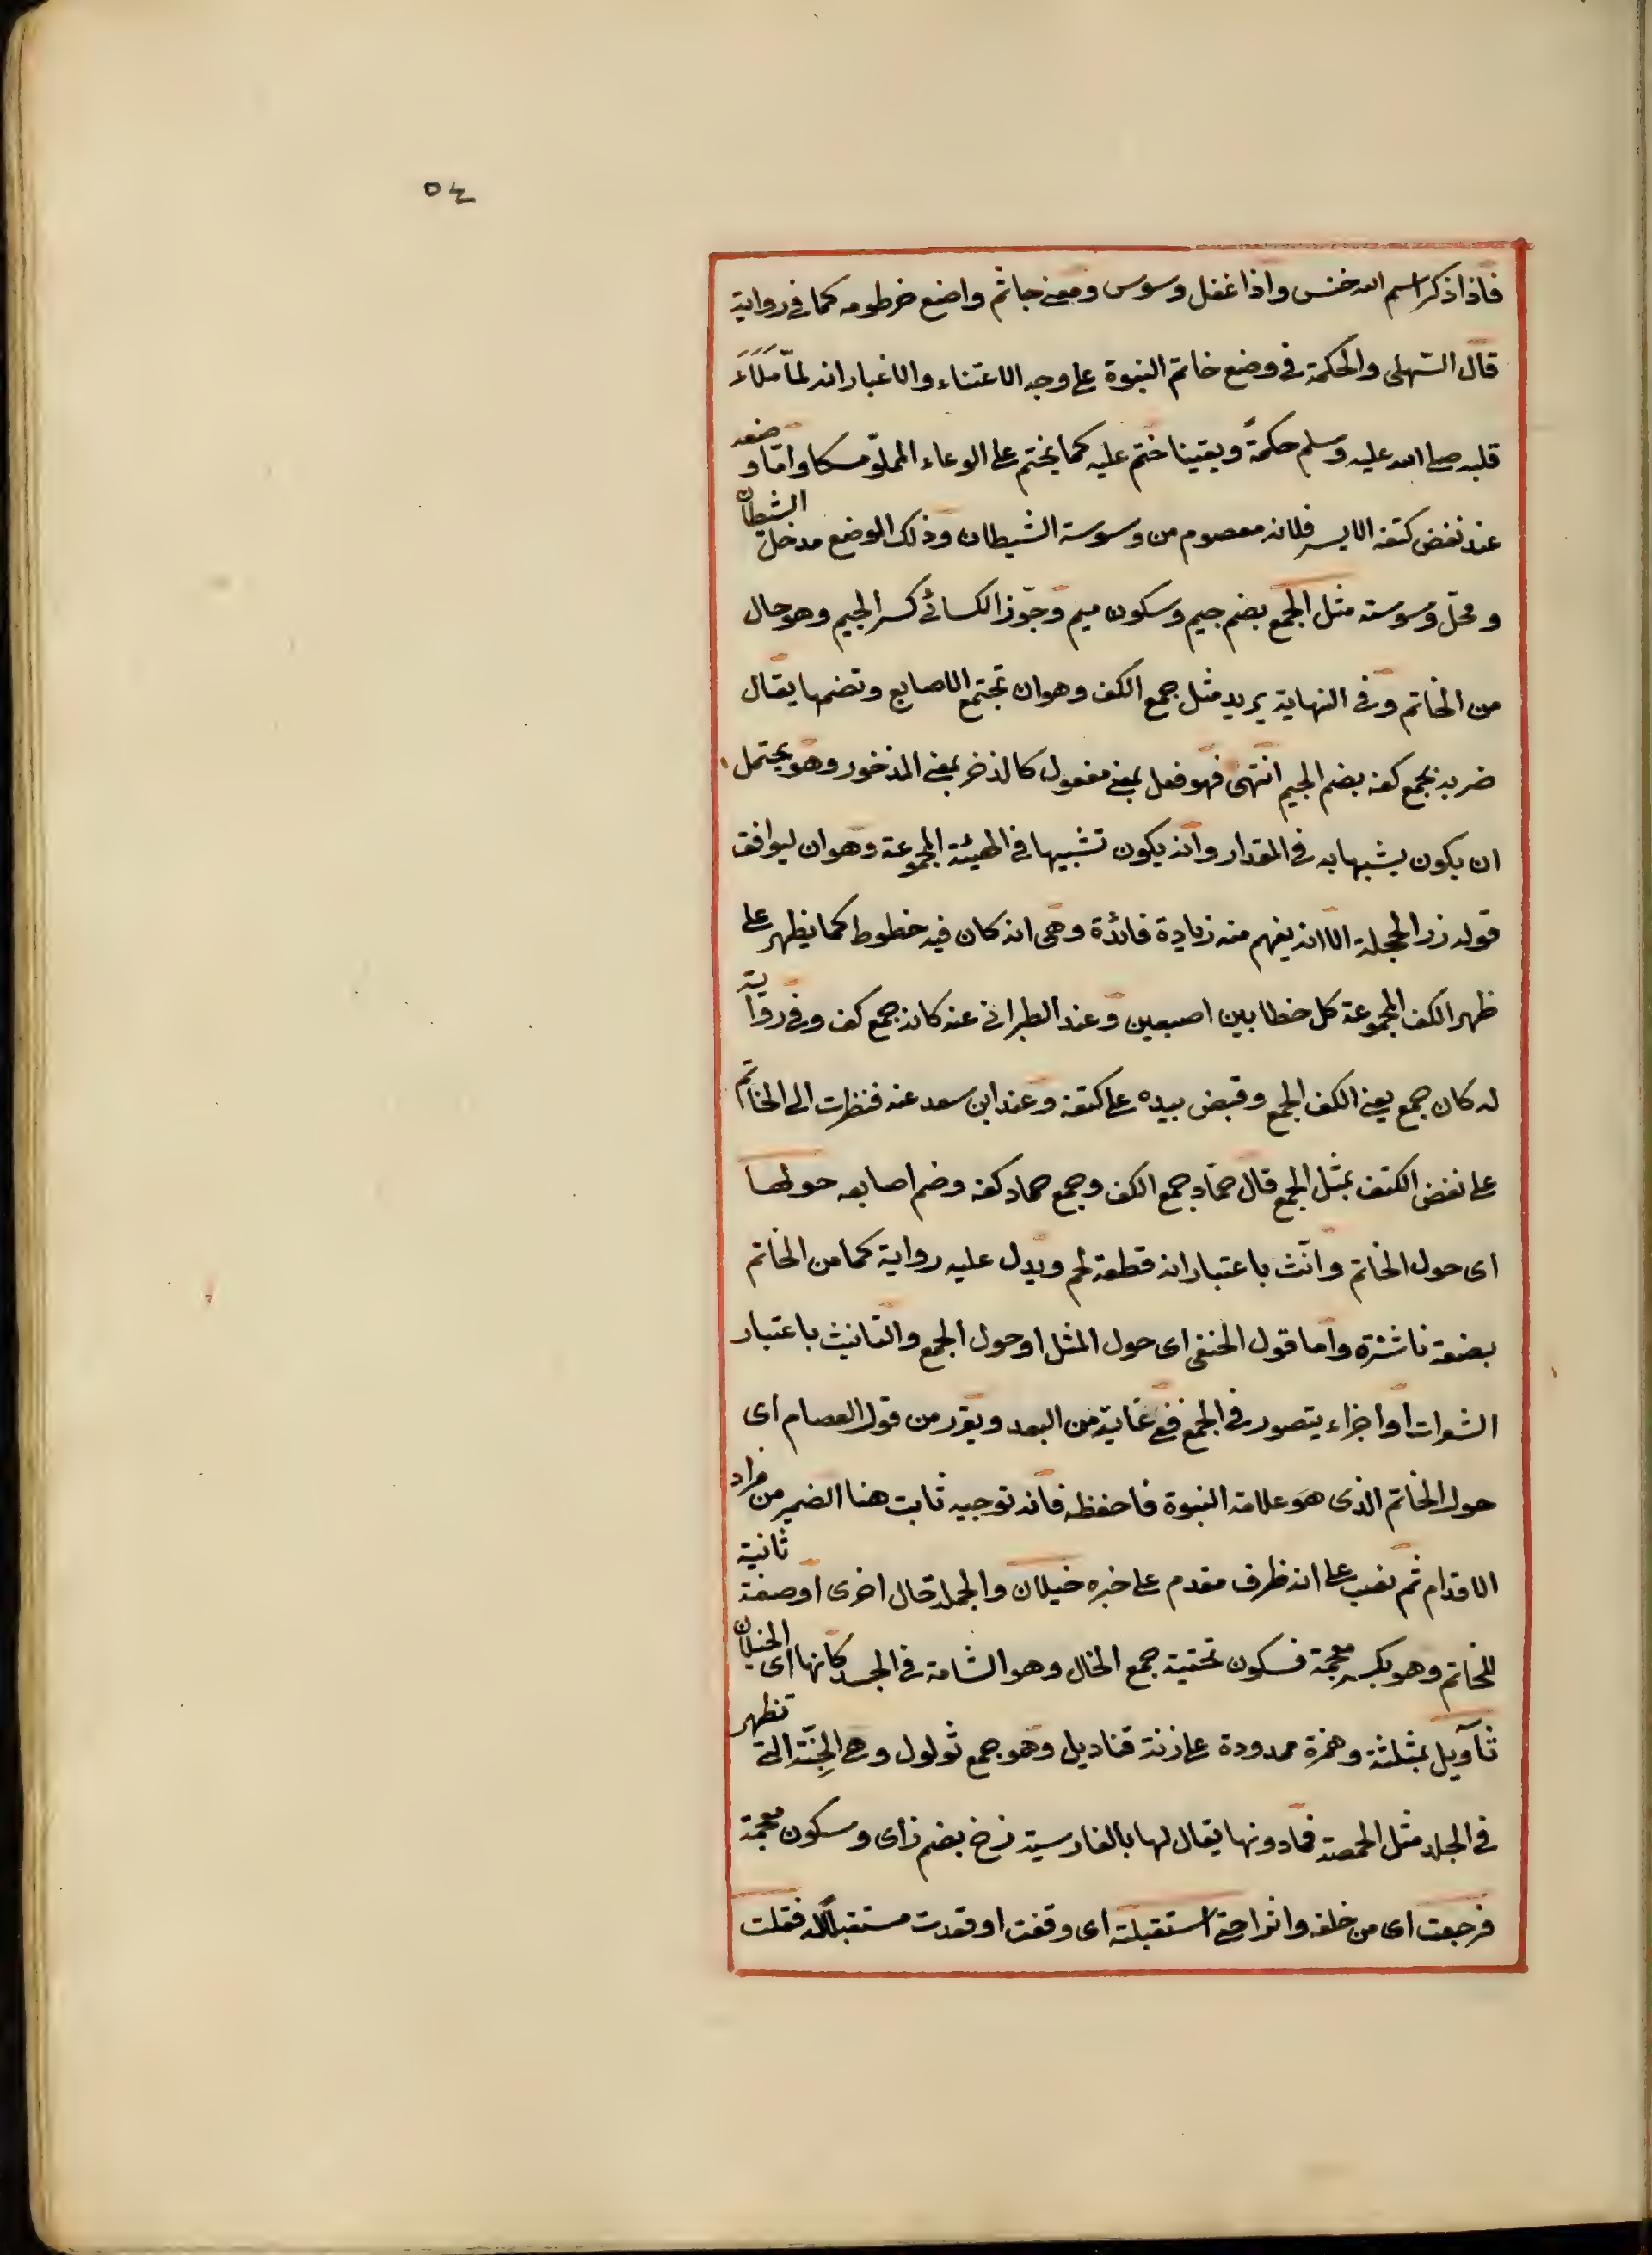 ٥٤
فاذا ذكر اسم الله خنس واذا غفل وسوس ومعنى جاثم واضع خرطومه كما فى رواية
قال السهيلى والحكمة فى وضع خاتم النبوة على وجه الاعتناء والاعتبار انه لما ملاء
قلبه صلى الله عليه وسلم حكمة ويقينا ختم عليه كما يختم على الوعاء المملو مسكا واما وضعه
عند نغض كتفه الايسر فلانه معصوم من وسوسة الشيطان وذلك الموضع مدخل الشيطان
ومحل وسوسته مثل الجمع بضم جيم وسكون ميم وجوز الكسائى كسر الجيم وهو حال
من الخاتم وفى النهاية يريد مثل جمع الكف وهو ان تجتمع الاصابع وتضمها يقال
ضربه بجمع كفه بضم الجيم انتهى فهو فعل بمعنى مفعول كالذخر بمعنى المذخور وهو يحتمل
ان يكون يشبها به فى المقدار وانه يكون تشبيها فى الهيئة المجموعة وهو ان ليوافق
قوله زر الحجلة الا انه يفهم منه زيادة فائدة وهى انه كان فيه خطوط كما يظهر على
ظهر الكف المجموعة كل خطا بين اصبعين وعند الطبرانى عنه كانه جمع كف وفى رواية
له كان جمع يعنى الكف الجمع وقبض بيده على كتفه وعند ابن سعد عنه فنظرت الى الخاتم
على نغض الكتف بمثل الجمع قال حماد جمع الكف وجمع حماد كفه وضم اصابعه حولها
اى حول الخاتم وانث باعتبار انه قطعة لحم ويدل عليه رواية كما من الخاتم
بضعة ناشزة واما قول الحنفى اى حول المثل او حول الجمع والتانيث باعتبار
الشعرات او اجزاء يتصور فى الجمع ففى غاية من البعد ويقرر من قول العصام اى
حول الخاتم الذى هو علامة النبوة فاحفظه فانه توجيه ثابت هنا الضمير من مراد
الاقدام ثم نصب على انه ظرف مقدم على خبره خيلان والجملة حال اخرى او صفة ثانية
للخاتم وهو بكسر معجمة فسكون تحتية جمع الخال وهو الشامة فى الجسد كانها اى الخيلان
ثآويل بمثلثة وهمزة ممدودة على زنة قناديل وهو جمع ثولول وهى الجنة التى تظهر
فى الجلد مثل الحمصة فما دونها يقال لها بالفارسية زخ بضم زاى وسكون معجمة
فرجعت اى من خلفه وانراحتى استقبلته اى وقفت او قعدت مستقبلا له فقلت